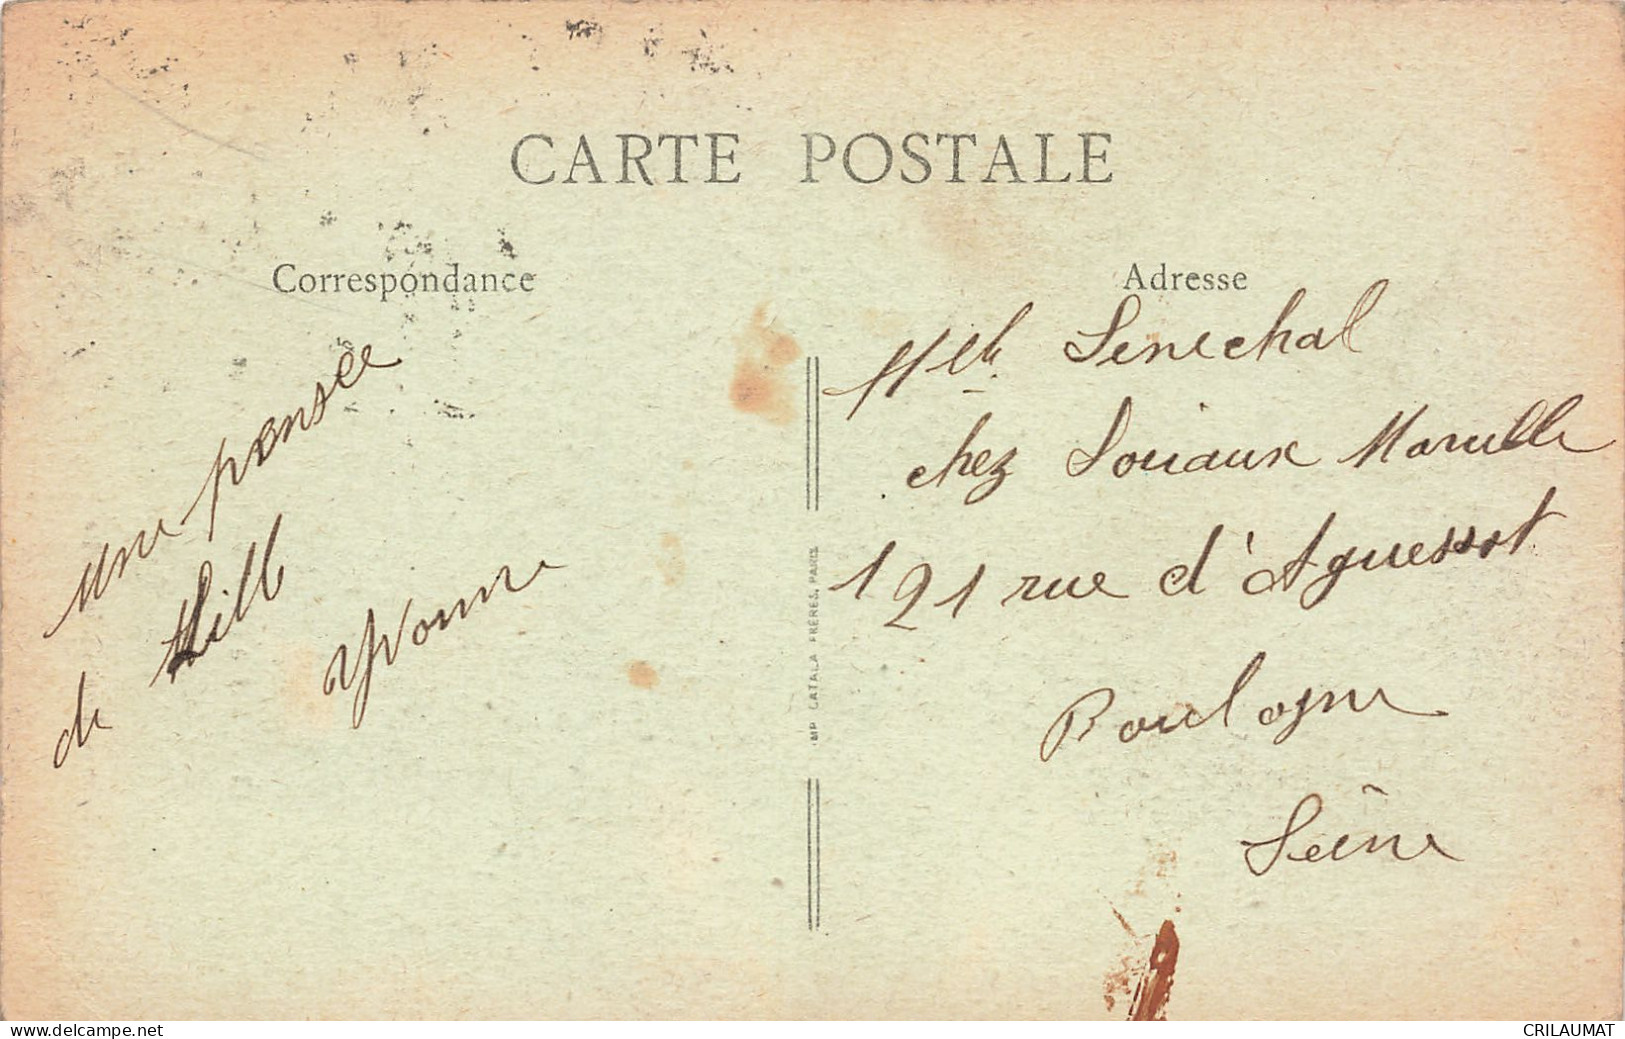 CARTE POSTALE
Correspondance
Adresse
une pensée
de Lille
Yvonne
Melle Senechal
chez Louaux
121 rue d'Aguessot
Boulogne
Seine
IMP. CATALA FRÈRES, PARIS
delcampe.net
CRILAUMAT